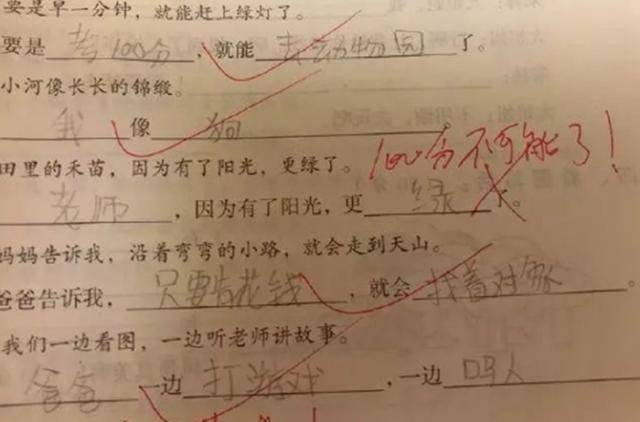 要是早一分钟，就能赶上绿灯了。
要是考100分，就能去动物园了。
小河像长长的锦缎。
我像狗。
田里的禾苗，因为有了阳光，更绿了。
100分不可能了！
老师，因为有了阳光，更绿了。
妈妈告诉我，沿着弯弯的小路，就会走到天山。
爸爸告诉我，只要肯花钱，就会找着对象。
我们一边看图，一边听老师讲故事。
爸爸一边打游戏，一边吗人